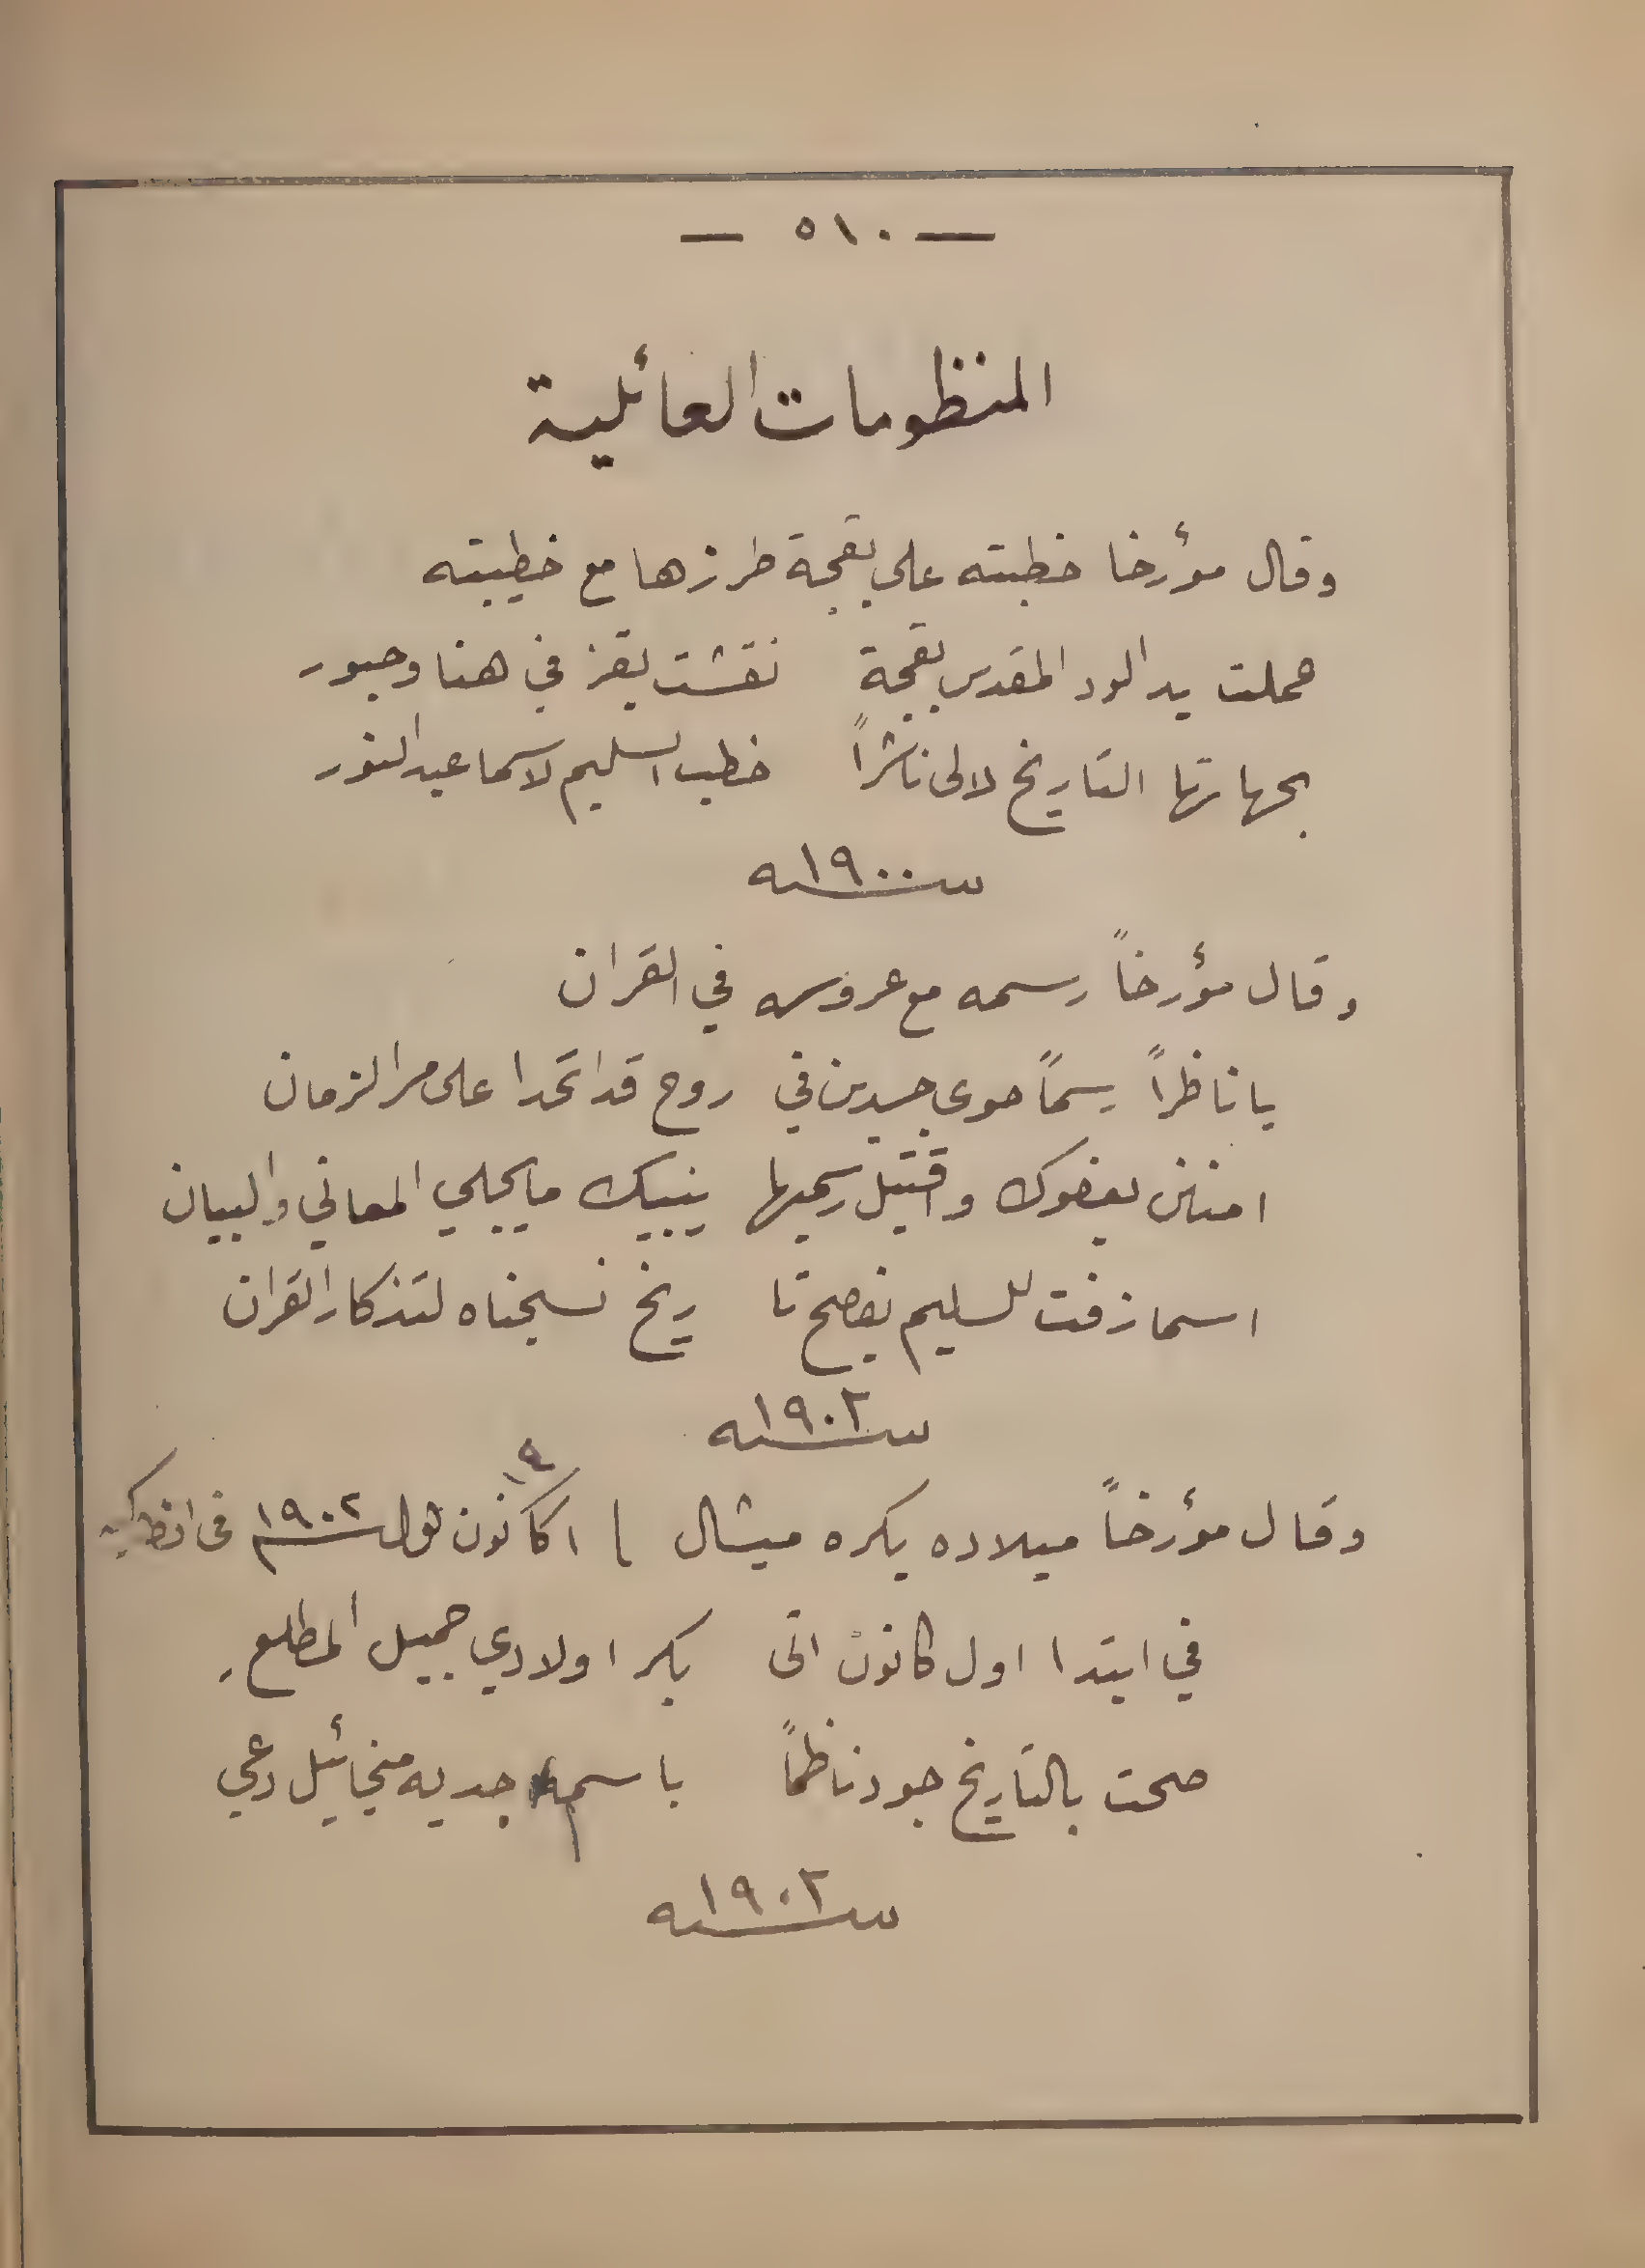 — ٥١٠ —
المنظومات العائلية
وقال مؤرخا خطبته على بقجة طرزها مع خطيبته
عملت يد الود المقدس بقجة نقشت بقز في هنا وحبور
بجهاتها التاريخ لالى ناشراً خطب السليم لاسما عبد النور
سنة ١٩٠٠
وقال مؤرخاً رسمه مع عروسه في القران
يا ناظراً رسماً حوى جسدين في روح قد اتحدا على مر الزمان
امنن بعفوك و رسميها ينبيك ما يجلي المعاني والبيان
اسما زفت للسليم بفصح تا ريخ نسجناه لتذكار القران
سنة ١٩٠٢
وقال مؤرخاً ميلاده بكره ميشال في ١ كانون اول سنة ١٩٠٢ في انطاكيه
١٩
في ابتدا اول كانون اتى بكر اولادي جميل المطلع
صحت بالتاريخ جود ناظماً باسم جديه ميخائيل دعي
سنة ١٩٠٢